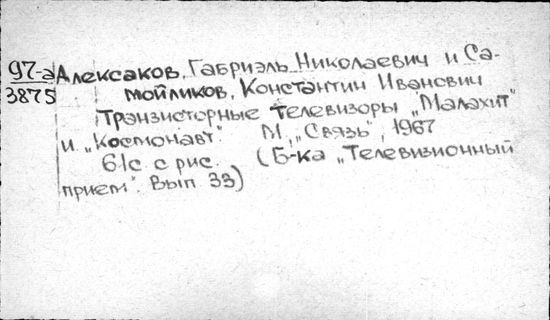 97-а Алексаков, Габриэль Николаевич и Са-
3875 мойликов, Константин Иванович
Транзисторные телевизоры „Малахит"
и „Космонавт". М., „Связь", 1967
61с. с рис. (Б-ка „Телевизионный
прием". Вып. 33)